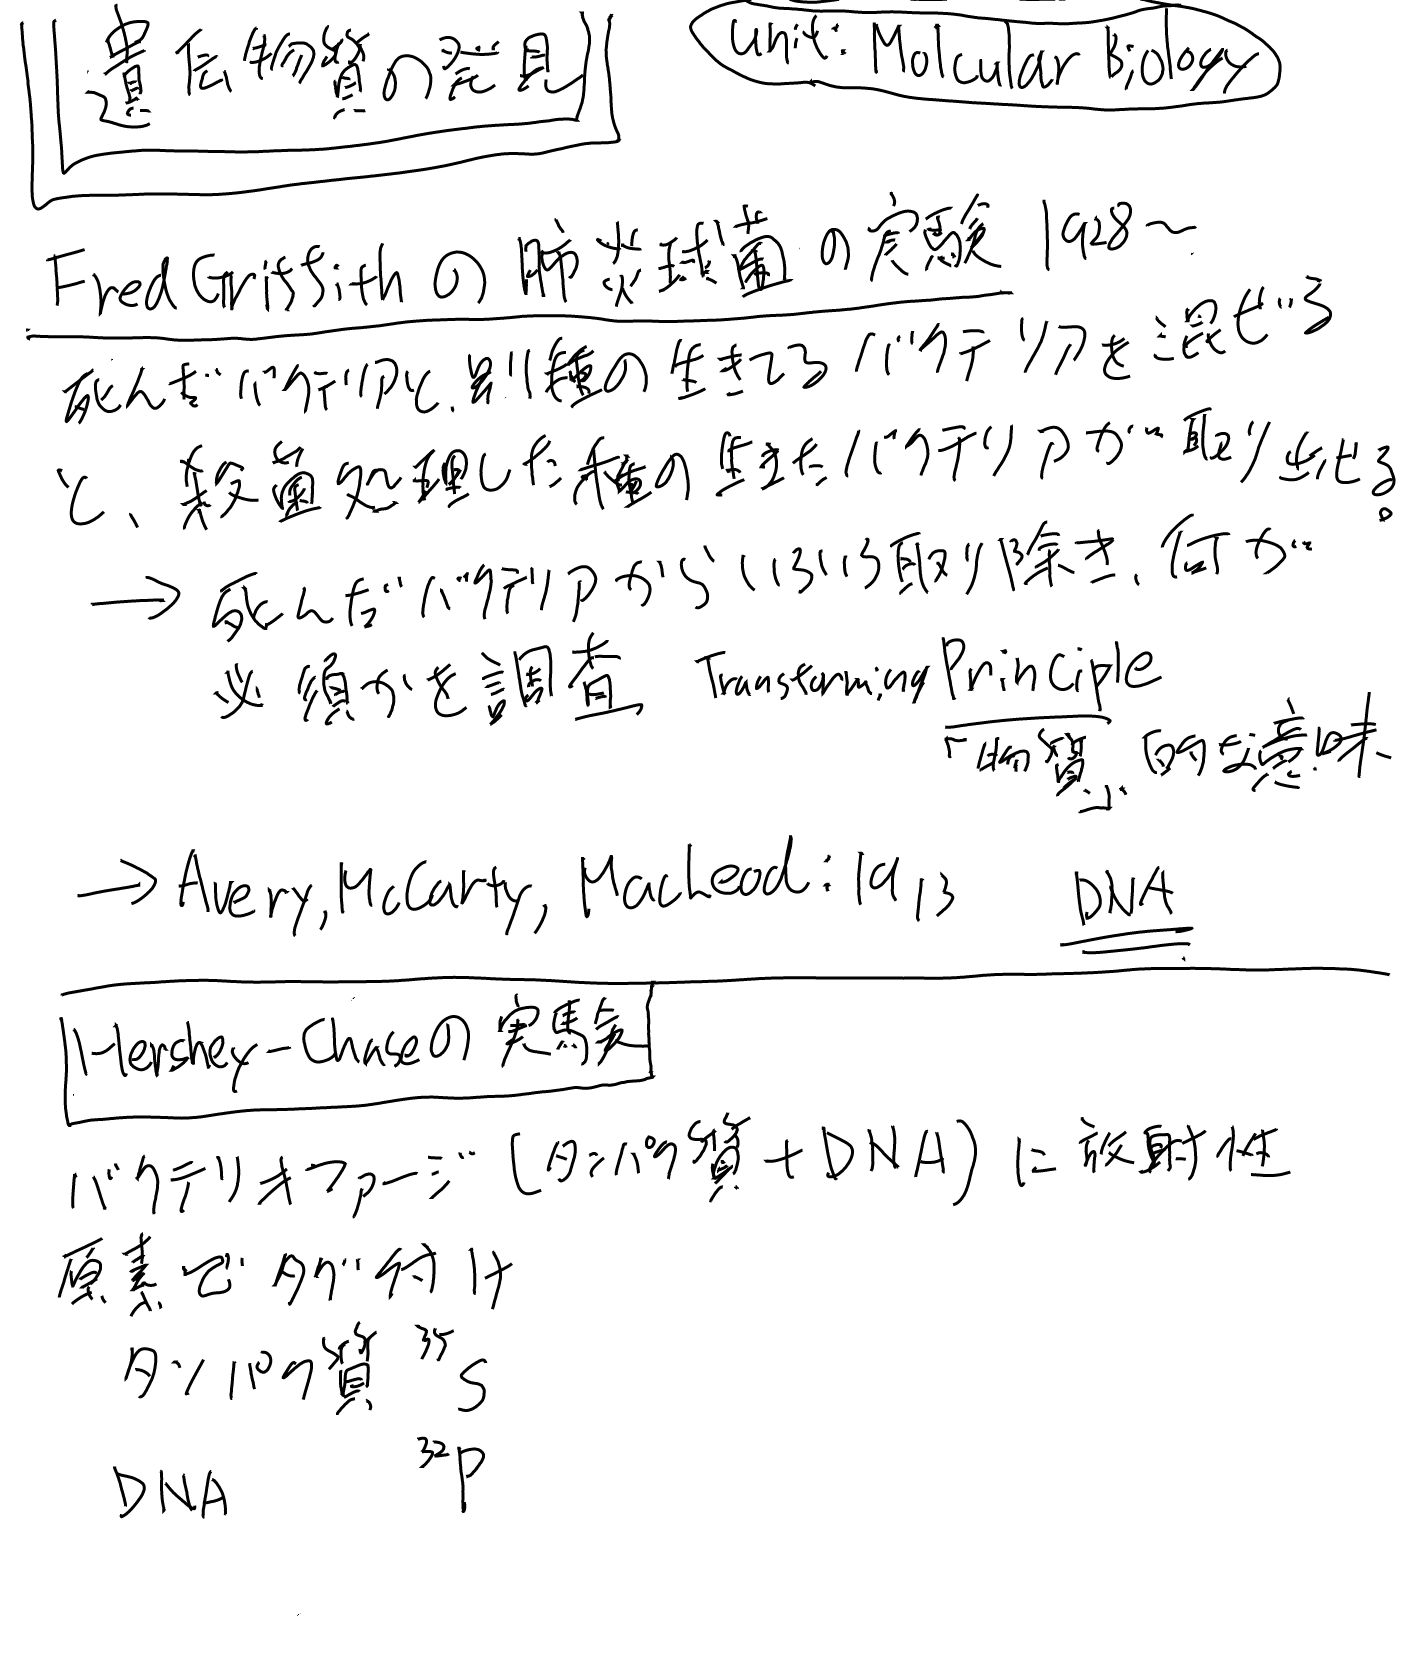 遺伝物質の発見
unit: Molcular Biology
Fred Griffithの肺炎球菌の実験 1928〜
死んだバクテリアと、別種の生きてるバクテリアを混ぜる
と、殺菌処理した種の生きたバクテリアが取り出せる。
→ 死んだバクテリアからいろいろ取り除き、何が
必須かを調査 Transforming Principle
「物質」的な意味
→ Avery, McCarty, MacLeod: 1913 DNA
Hershey-Chaseの実験
バクテリオファージ(タンパク質+DNA)に放射性
原素でタグ付け
タンパク質 ³⁵S
DNA ³²P